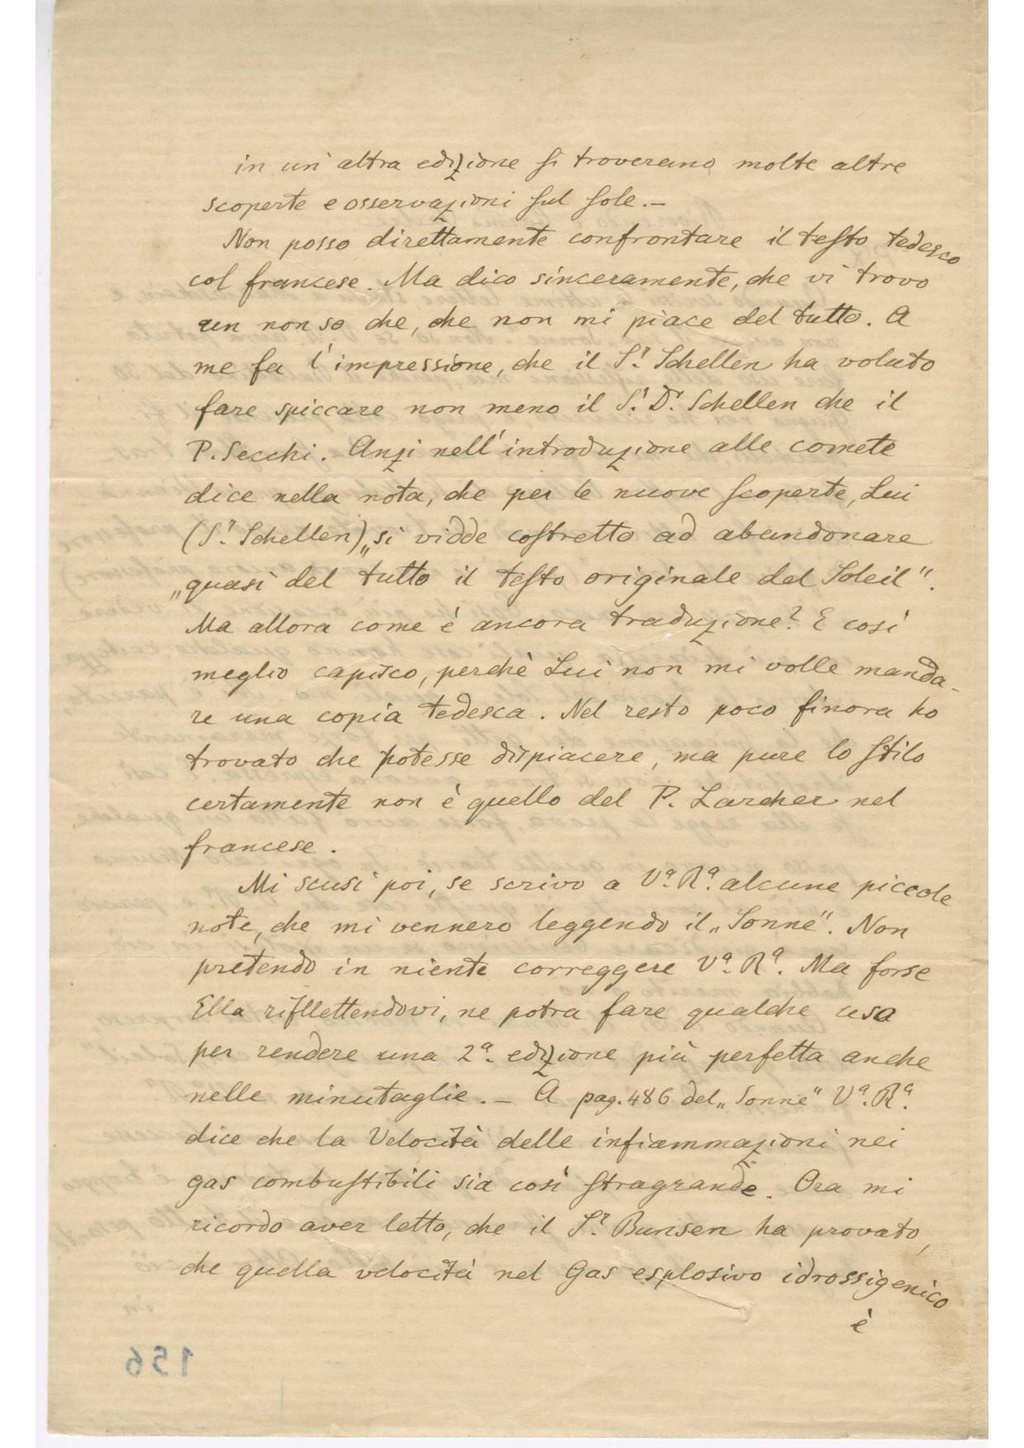 in un' altra edizione si troverano molte altre
scoperte e osservazioni sul sole.—
Non posso direttamente confrontare il testo tedesco
col francese. Ma dico sinceramente, che vi trovo
un non so che, che non mi piace del tutto. A
me fa l'impressione, che il S.r Schellen ha voluto
fare spiccare non meno il S.r D.r Schellen che il
P. Secchi. Anzi nell' introduzione alle comete
dice nella nota, che per le nuove scoperte, Lui
(S.r Schellen) „si vidde costretto ad abandonare
„quasi del tutto il testo originale del Soleil".
Ma allora come è ancora traduzione? E così
meglio capisco, perchè Lui non mi volle manda-
re una copia tedesca. Nel resto poco finora ho
trovato che potesse dispiacere, ma pure lo stilo
certamente non è quello del P. Larcher nel
francese.
Mi scusi poi, se scrivo a V.a R.a alcune piccole
note, che mi vennero leggendo il „Sonne". Non
pretendo in niente correggere V.a R.a. Ma forse
Ella riflettendovi, ne potra fare qualche uso
per rendere una 2.a edizione più perfetta anche
nelle minutaglie.— A pag. 486 del „Sonne" V.a R.a
dice che la Velocità delle infiammazioni nei
gas combustibili sia così stragrande. Ora mi
ricordo aver letto, che il S.r Bunsen ha provato,
che quella velocità nel Gas esplosivo idrossigenico
è
156